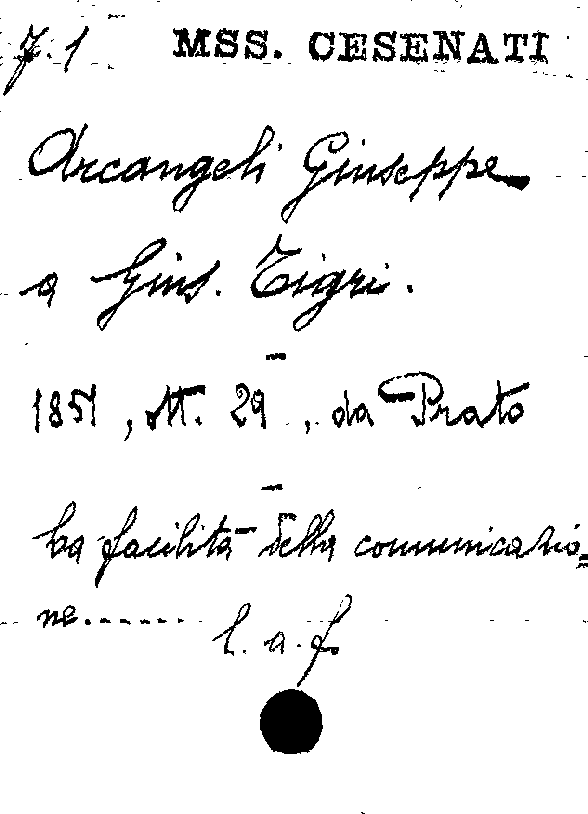 7.1 MSS. CESENATI
Arcangeli Giuseppe
a Gius. Tigri.
–
1851, ott. 29, da Prato
–
La facilità della comunicazio=
ne......
l. a. f.